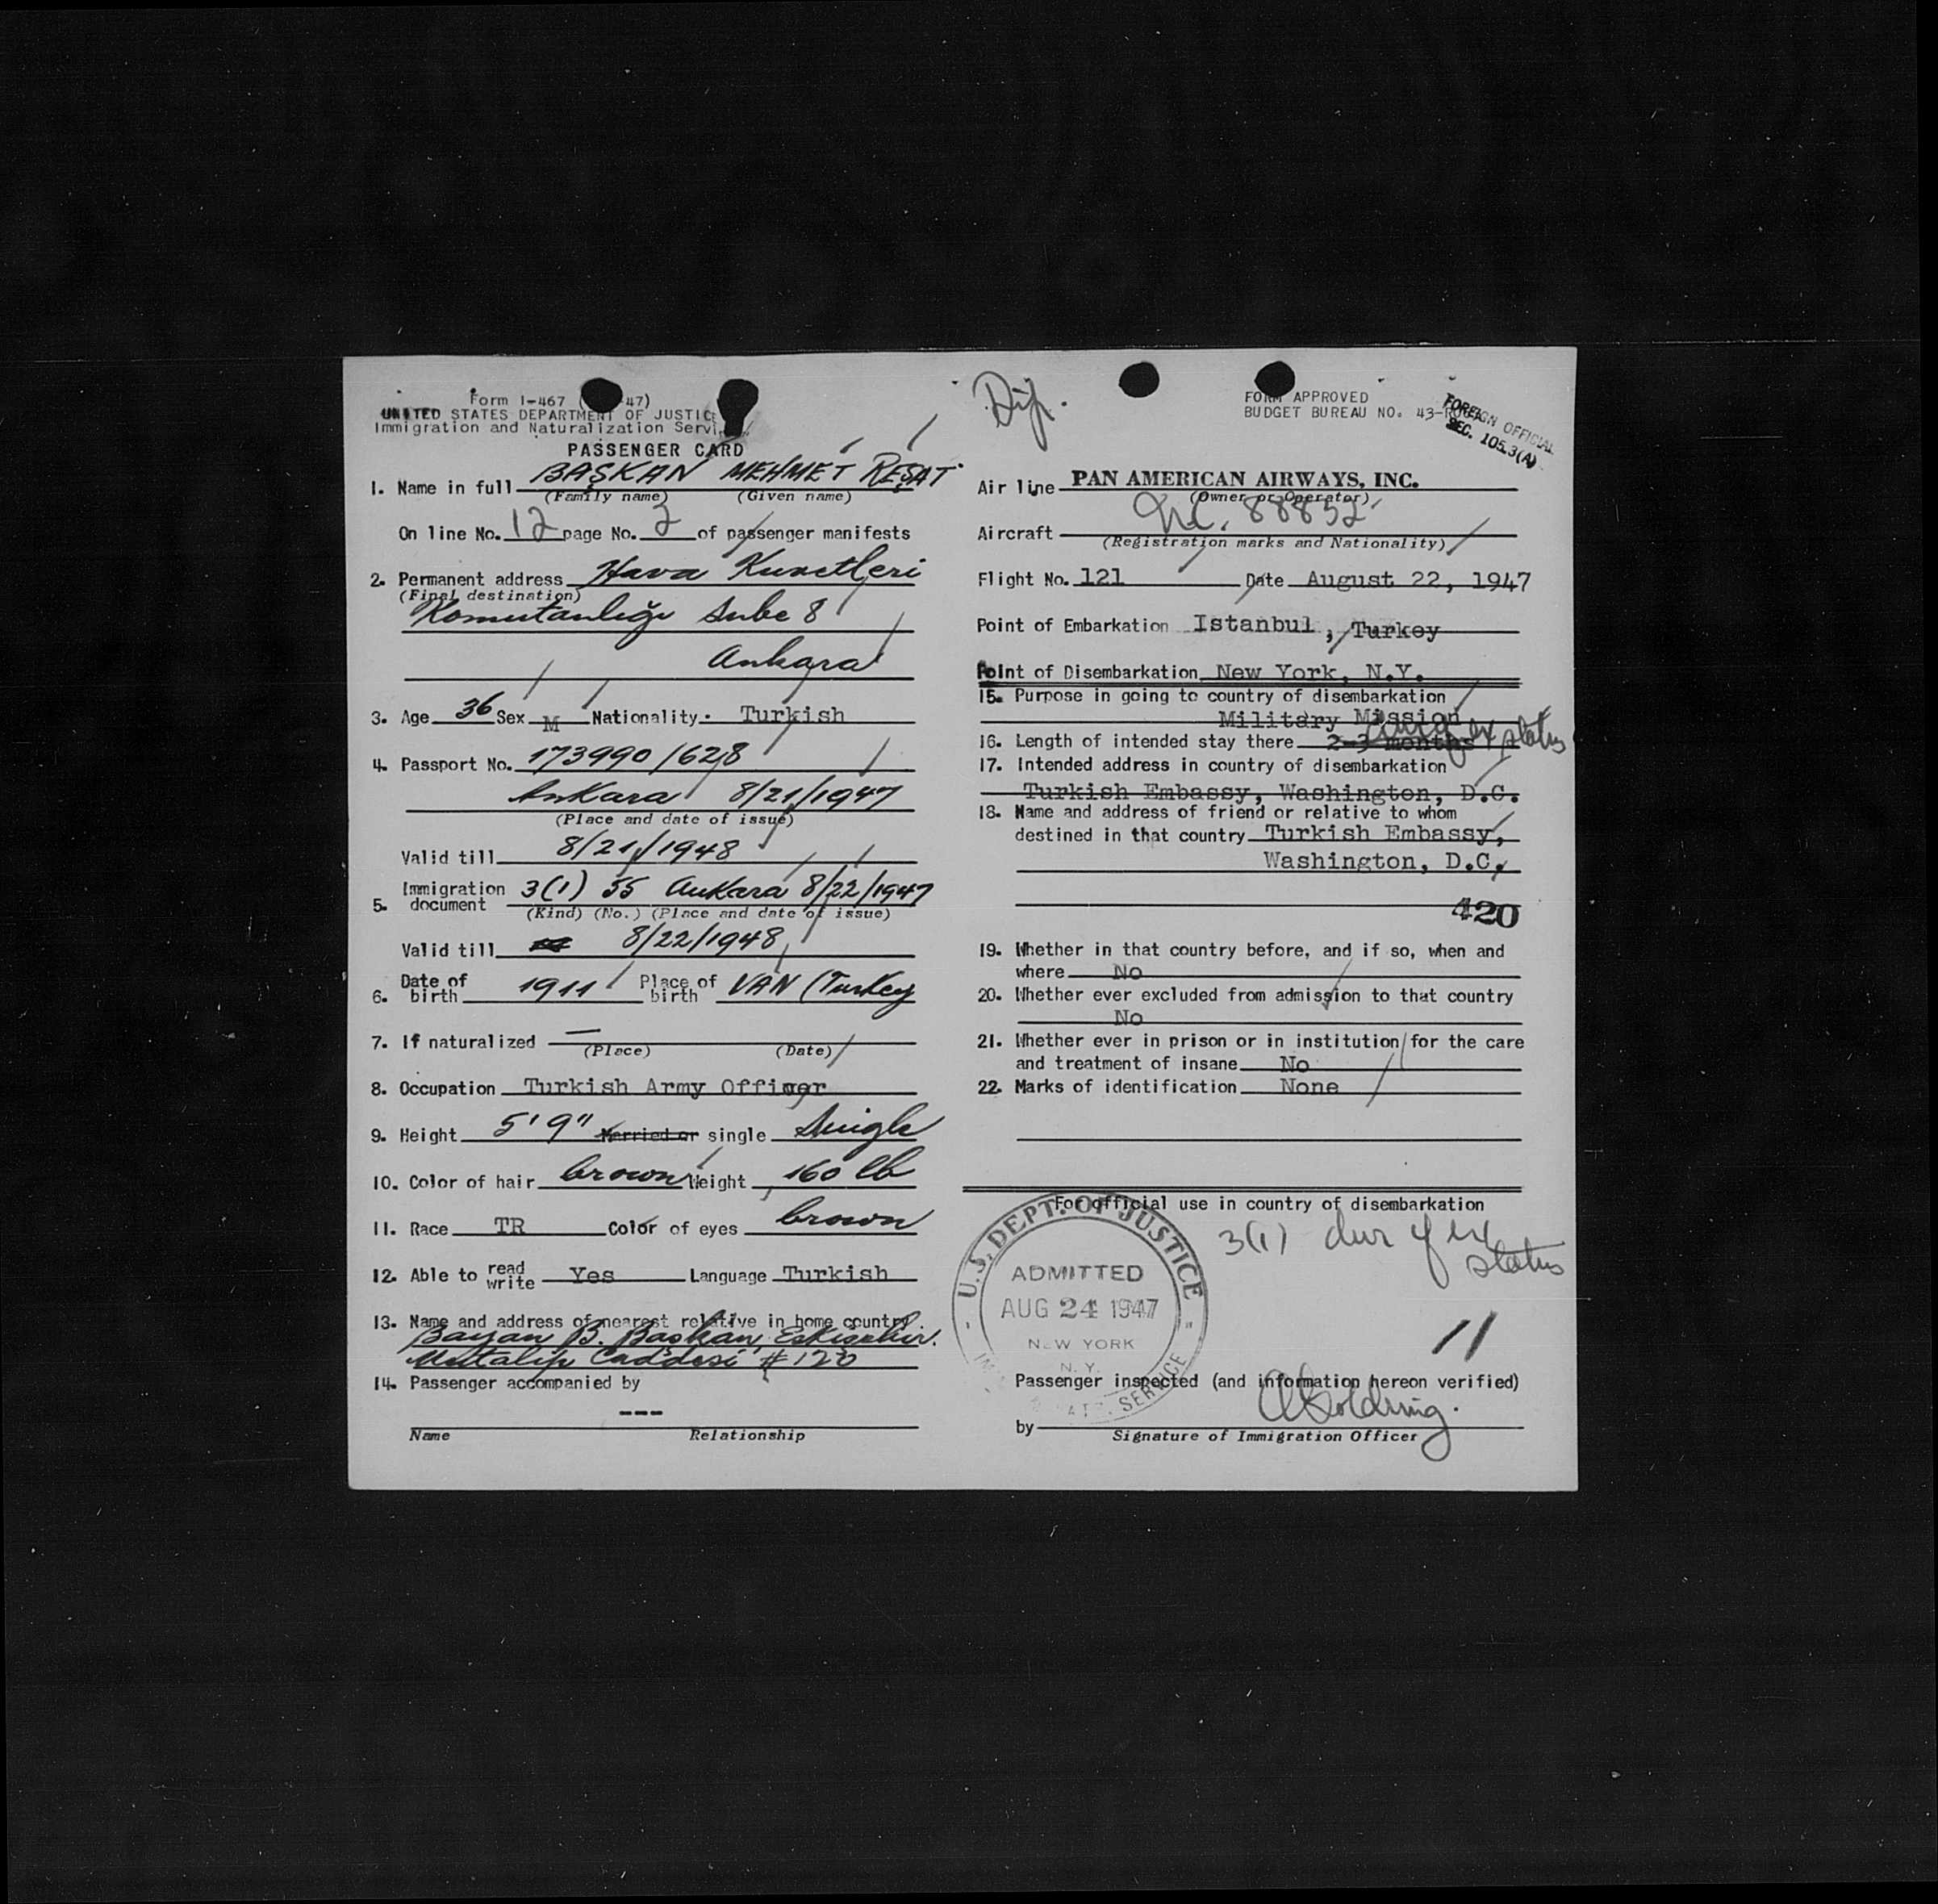 Form I-467 ( 47)
UNITED STATES DEPARTMENT OF JUSTIC
Immigration and Naturalization Servi
PASSENGER CARD
1. Name in full BAŞKAN MEHMET REŞAT
(Family name) (Given name)
On line No. 12 page No. 2 of passenger manifests
2. Permanent address Hava Kuvetleri
(Final destination)
Komutanlığı Şube 8
Ankara
3. Age 36 Sex M Nationality Turkish
4. Passport No. 173990/628
Ankara 8/21/1947
(Place and date of issue)
Valid till 8/21/1948
5. Immigration document 3(1) 55 Ankara 8/22/1947
(Kind) (No.) (Place and date of issue)
Valid till 8/22/1948
6. Date of birth 1911 Place of birth VAN (Turkey
7. If naturalized —
(Place) (Date)
8. Occupation Turkish Army Officer
9. Height 5'9" Married or single Single
10. Color of hair brown Weight 160 lb
11. Race TR Color of eyes brown
12. Able to read write Yes Language Turkish
13. Name and address of nearest relative in home country.
Bayan B. Başkan, Eskişehir.
Mutalip Caddesi #120
14. Passenger accompanied by
---
Name Relationship
Dip.
FORM APPROVED
BUDGET BUREAU NO. 43-R
FOREIGN OFFICIAL
SEC. 105.3(A)
Air line PAN AMERICAN AIRWAYS, INC.
(Owner or Operator)
Aircraft NC. 88832
(Registration marks and Nationality)
Flight No. 121 Date August 22, 1947
Point of Embarkation Istanbul, Turkey
Point of Disembarkation New York, N.Y.
15. Purpose in going to country of disembarkation
Military Mission
16. Length of intended stay there 2-3 months status
17. Intended address in country of disembarkation
Turkish Embassy, Washington, D.C.
18. Name and address of friend or relative to whom
destined in that country Turkish Embassy,
Washington, D.C,
420
19. Whether in that country before, and if so, when and
where No
20. Whether ever excluded from admission to that country
No
21. Whether ever in prison or in institution for the care
and treatment of insane No
22. Marks of identification None
For official use in country of disembarkation
3(1) dur of ex status
U.S. DEPT. OF JUSTICE
ADMITTED
AUG 24 1947
NEW YORK
N.Y.
SERVICE
11
Passenger inspected (and information hereon verified)
by A Goldring.
Signature of Immigration Officer